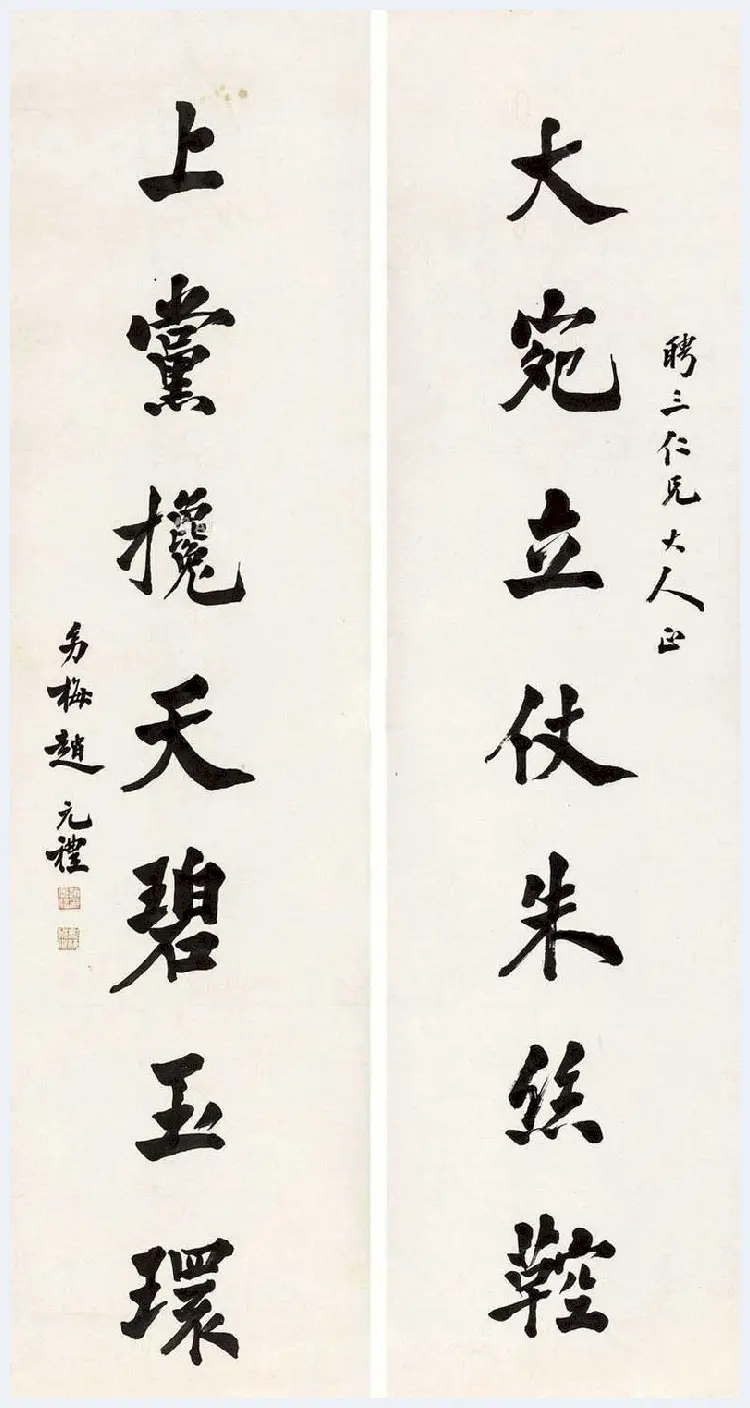 聘三仁兄大人正
大宛立仗朱絲鞚
上黨攙天碧玉環
幼梅趙元禮